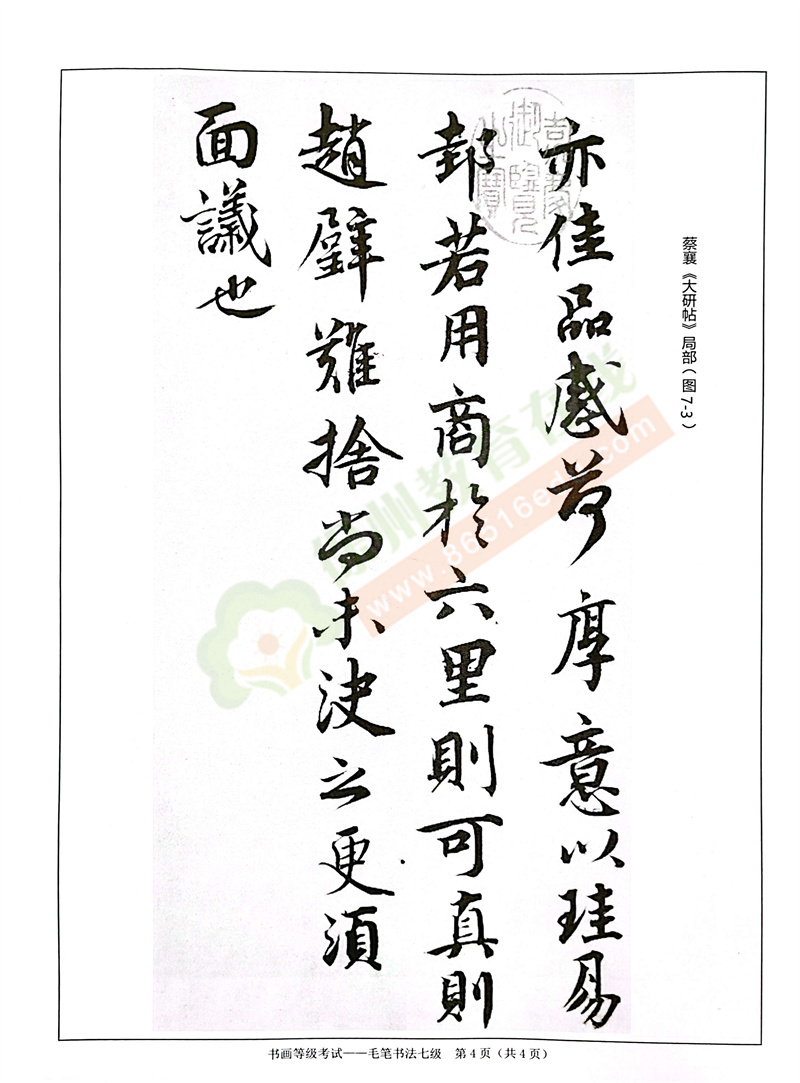 蔡襄《大研帖》局部（图7-3）
嘉慶御覽之寶
亦佳品感荷厚意以珪易
邽若用商於六里則可真則
趙璧難捨尚未決之更須
面議也
徐州教育在线
www.86516edu.com
书画等级考试——毛笔书法七级 第4页（共4页）